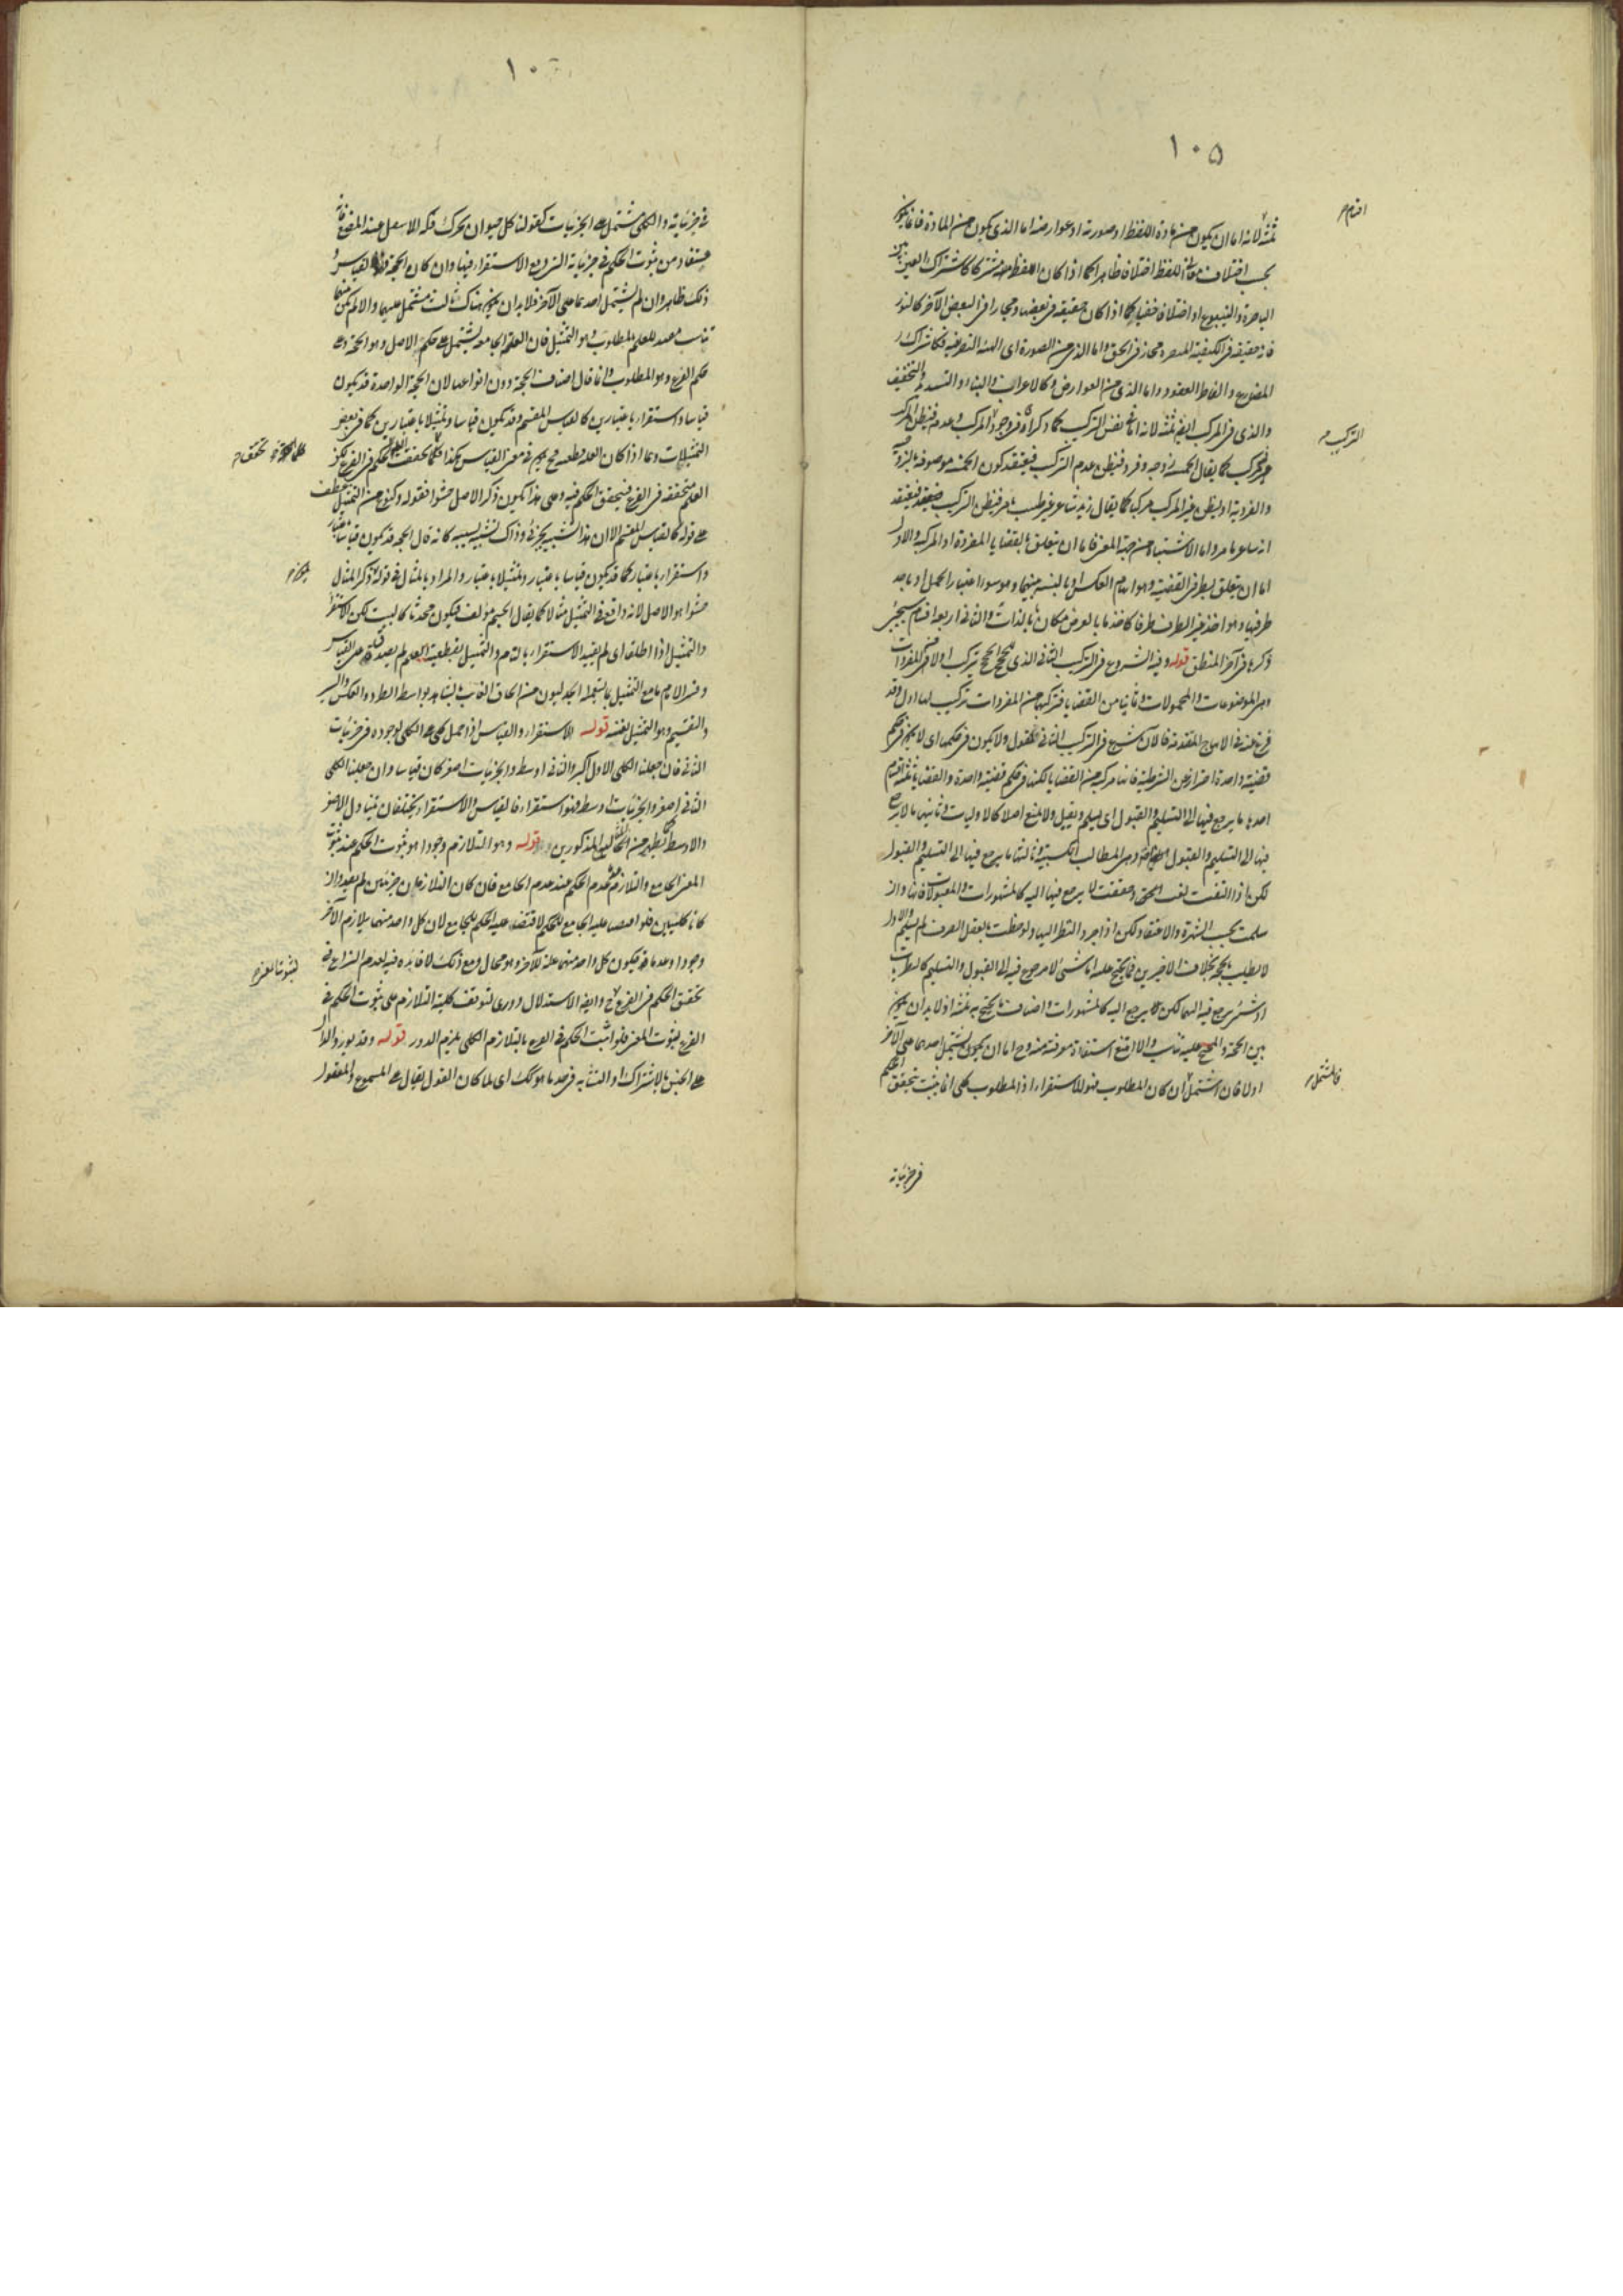 ١٠٥
اقسام
ثلثة لانه اما ان يكون من مادة اللفظ او صورته او عوارضه اما الذى يكون من المادة فاما يكون
بحسب اختلاف اللفظ اختلافا ظاهرا كما اذا كان اللفظ مشتركا كاشتراك العين بين
الباصرة والينبوع او اختلافا خفيا كما اذا كان حقيقة فى بعضها ومجازا فى البعض الآخر كالنور
فانه حقيقة فى الكيفية المبصرة مجاز فى الحق واما الذى من الصورة اى الهيئة التصريفية فكاشتراك
المضارع والفاظ العقود واما الذى من العوارض فكالاعراب والبناء والتشديد والتخفيف
والذى فى المركب ايضا ثلثة لانه اما فى نفس التركيب كما ذكرناه فى وجود المركب وعدمه فيظن المركب
التركيب
غير مركب كما يقال الخمسة زوج وفرد فيظن عدم التركيب فيعتقد كون الخمسة موصوفة بالزوجية
والفردية او يظن غير المركب مركبا كما يقال زيد شاعر وطبيب ماهر فيظن التركيب فيعتقد
انه شاعر ماهر واما الاشتباه من جهة المعنى فاما ان يتعلق بالقضايا المفردة او المركبة والاول
اما ان يتعلق بطرفى القضية وهو ايهام العكس او بالنسبة بينهما وهو سوء اعتبار الحمل او باحد
طرفيها وهو اخذ غير الطرف طرفا كاخذ ما بالعرض مكان ما بالذات والثانى اربعة اقسام سيجئ
ذكرها فى آخر المنطق قوله وفيه الشروع فى التركيب الثانى الذى للحجج الحجج يتركب اولا من المفردات
وهى الموضوعات والمحمولات وثانيا من القضايا فتركبها من المفردات تركيب لها اول وقد
فرغ عنه فى الابواب المتقدمة فالآن شرع فى التركيب الثانى فنقول ولا يكون فى حكمها اى لا يكون فى حكم
قضية واحدة احترازا عن الشرطية فانها مركبة من القضايا لكنها فى حكم قضية واحدة والقضايا ثلثة اقسام
احدها ما يرجع فيها الى التسليم والقبول اى يسلم ويقبل ولا يمنع اصلا كالاوليات وثانيها ما لا يرجع
فيها الى التسليم والقبول وهى المطالب الكسبية وثالثها ما يرجع فيها الى التسليم والقبول
لكن اذا التفت لفت الحق وحققت لا يرجع فيها اليه كالمشهورات والمقبولات فانها وان
سلمت بحسب الشهرة والاعتقاد لكن اذا جرد النظر اليها ولوحظت بالعقل الصرف لم يسلم والاول
لا يطلب بحجة بخلاف الاخيرين فما يحتج عليه اما شئ لا مرجوع فيه الى القبول والتسليم كالنظريات
او شئ يرجع فيه اليهما لكن لا يرجع اليه كالمشهورات واصناف ما يحتج به ثلثة اذ لا بد ان يكون
بين الحجة والمحتج عليه تناسب والا امتنع استفادة معرفته منه وح اما ان يكون يشتمل احدهما على الآخر
فاشتمل
او لا فان اشتمل ان كان المطلوب فهو الاستقراء اذ المطلوب كلى انما يثبت بتحقق الحكم
فى جزئياته
١٠٦
فى جزئياته والكلى مشتمل على الجزئيات كقولنا كل حيوان يحرك فكه الاسفل عند المضغ فانه
مستفاد من ثبوت الحكم فى جزئياته التى وقع الاستقراء فيها وان كان الحجة فهو القياس و
ذلك ظاهر وان لم يشتمل احدهما على الآخر فلا بد ان يكون هناك ثالث مشتمل عليهما والا لم يكن بينهما
تناسب معد للعلم بالمطلوب وهو التمثيل فان العلة الجامعة يشتمل على حكم الاصل وهو الحجة وعلى
حكم الفرع وهو المطلوب وانما قال اصناف الحجة دون انواعها لان الحجة الواحدة قد يكون
قياسا واستقراء باعتبارين كالقياس المقسم وقد يكون قياسا وتمثيلا باعتبارين كما فى بعض
التمثيلات وهما اذا كان العلة قطعية فح يكون فى معنى القياس هكذا كلما تحققت العلة تحقق الحكم فى الفرع لكن
العلة متحققة فى الفرع فيتحقق الحكم فيه وعلى هذا يكون ذكر الاصل حشوا فقوله وكنوع من التمثيل عطف
على قوله كالقياس المقسم الا ان هذا تشبيه بجزئى وذاك تشبيه بسببه كانه قال الحجة قد يكون قياسا باعتبار
واستقراء باعتبار كما قد يكون قياسا باعتبار وتمثيلا باعتبار والمراد بالمثال فى قوله ذكر المثال
حشوا هو الاصل لانه واقع فى التمثيل مثالا كما يقال الجسم مؤلف فيكون محدثا كالبيت لكن الاستقراء
والتمثيل اذا اطلقا اى لم يقيد الاستقراء بالتام والتمثيل بقطعية العلة لم يصدق على القياس
وفسر الامام ما مع التمثيل بما يستعمله الجدليون من الحاق الغائب بالشاهد بواسطة الطرد والعكس والسبر
والتقسيم وهو التمثيل نفسه قوله الاستقراء والقياس اذا حمل كلى على الكلى لوجوده فى جزئيات
الثانى فان جعلنا الكلى الاول اكبر والثانى اوسط والجزئيات اصغر كان قياسا وان جعلنا الكلى
الثانى اصغر والجزئيات اوسط فهو استقراء فالقياس والاستقراء يختلفان بتبادل الاصغر
والاوسط كما يظهر من المثالين المذكورين قوله وهو التلازم وجودا هو ثبوت الحكم عند ثبوت
المعنى الجامع والتلازم عدما عدم الحكم عند عدم الجامع فان كان التلازمان جزئيين لم يفيدا وان
كانا كليين فلو اقتضى علية الجامع للحكم لاقتضى علية الحكم للجامع لان كل واحد منهما يلازم الآخر
وجودا وعدما فيكون كل واحد منهما علة للآخر وهو محال ومع ذلك لا فائدة فيه لعدم النزاع فى
لثبوت المعنى
تحقق الحكم فى الفرع ح وايضا الاستدلال دورى لتوقف كلية التلازم على ثبوت الحكم فى
الفرع لثبوت المعنى فلو اثبت الحكم فى الفرع بالتلازم الكلى يلزم الدور قوله وقد يورد القول
على الجنس بالاشتراك او التشابه فى حد ما هو كك اى لما كان القول يقال على المسموع والمعقول